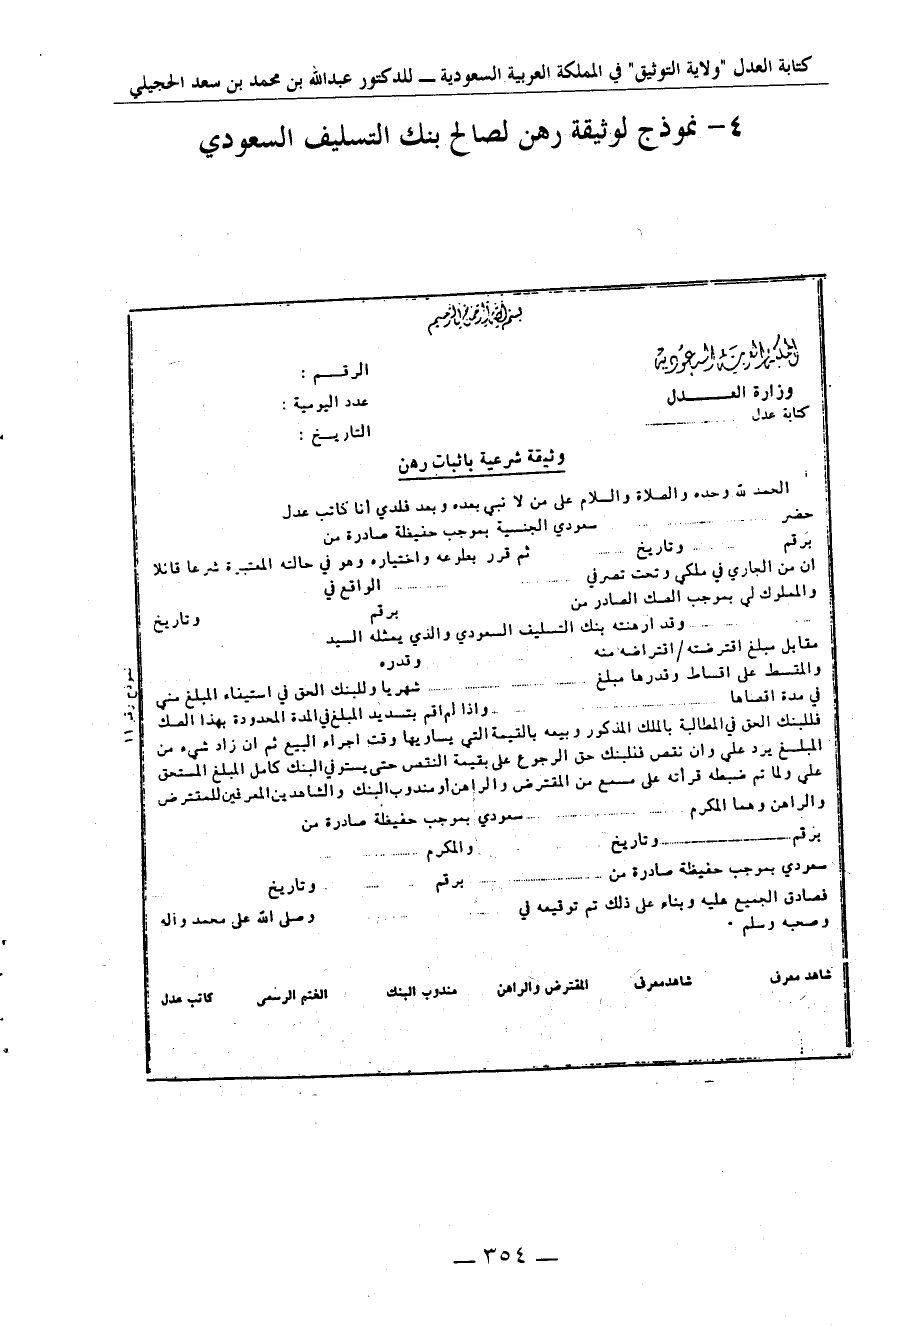 كتابة العدل "ولاية التوثيق" في المملكة العربية السعودية ــ للدكتور عبدالله بن محمد بن سعد الحجيلي
٤- نموذج لوثيقة رهن لصالح بنك التسليف السعودي
بسم الله الرحمن الرحيم
المملكة العربية السعودية
الرقـــم :
وزارة العــــدل
عدد اليومية :
كتابة عدل
التاريــخ :
وثيقة شرعية باثبات رهن
الحمد لله وحده والصلاة والسلام على من لا نبي بعده وبعد فلدي أنا كاتب عدل
حضر ........ سعودي الجنسية بموجب حفيظة صادرة من
برقم ........ وتاريخ ........ ثم قرر بطوعه واختياره وهو في حالته المعتبرة شرعا قائلا
ان من الجاري في ملكي وتحت تصرفي ........ الواقع في
والمملوك لي بموجب الصك الصادر من ........ برقم ........ وتاريخ
........ وقد ارهنته بنك التسليف السعودي والذي يمثله السيد
مقابل مبلغ اقترضته/اقتراضه منه ........ وقدره
والمقسط على اقساط وقدرها مبلغ ........ شهريا وللبنك الحق في استيفاء المبلغ مني
في مدة اقصاها ........ واذا لم اقم بتسديد المبلغ في المدة المحدودة بهذا الصك
فللبنك الحق في المطالبة بالملك المذكور وبيعه بالقيمة التي يساويها وقت اجراء البيع ثم ان زاد شيء من
المبلــغ يرد علي وان نقص فللبنك حق الرجوع على بقيمة النقص حتى يستوفي البنك كامل المبلغ المستحق
علي ولما تم ضبطه قرأته على مسمع من المقترض والراهن أو مندوب البنك والشاهدين المعرفين للمقترض
والراهن وهما المكرم ........ سعودي بموجب حفيظة صادرة من
برقم ........ وتاريخ ........ والمكرم ........
سعودي بموجب حفيظة صادرة من ........ برقم ........ وتاريخ
فصادق الجميع عليه وبناء على ذلك تم توقيعه في ........ وصلى الله على محمد وآله
وصحبه وسلم .
شاهد معرف شاهد معرف المقترض والراهن مندوب البنك الختم الرسمي كاتب عدل
نموذج رقم ١١
ــ ٣٥٤ ــ